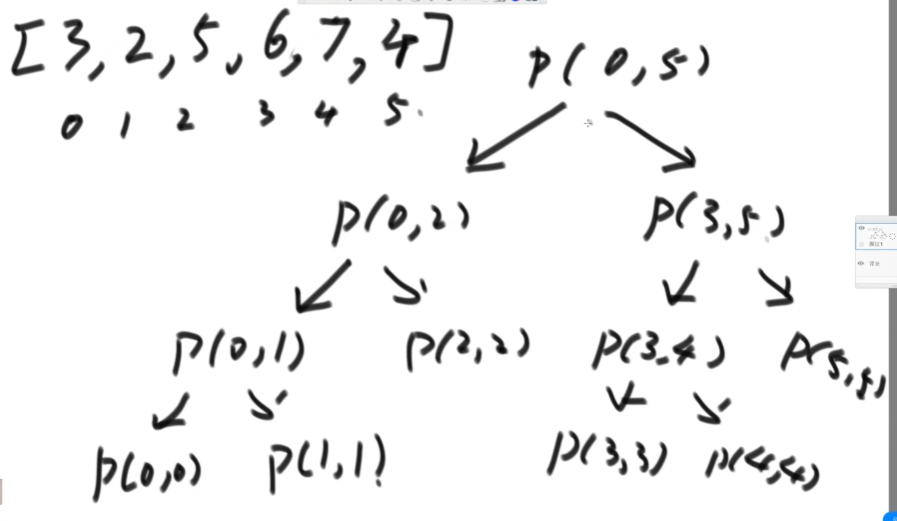 [3,2,5,6,7,4]
p(0,5)
0 1 2 3 4 5.
p(0,2) p(3,5)
p(0,1) p(2,2) p(3,4) p(5,5)
p(0,0) p(1,1) p(3,3) p(4,4)